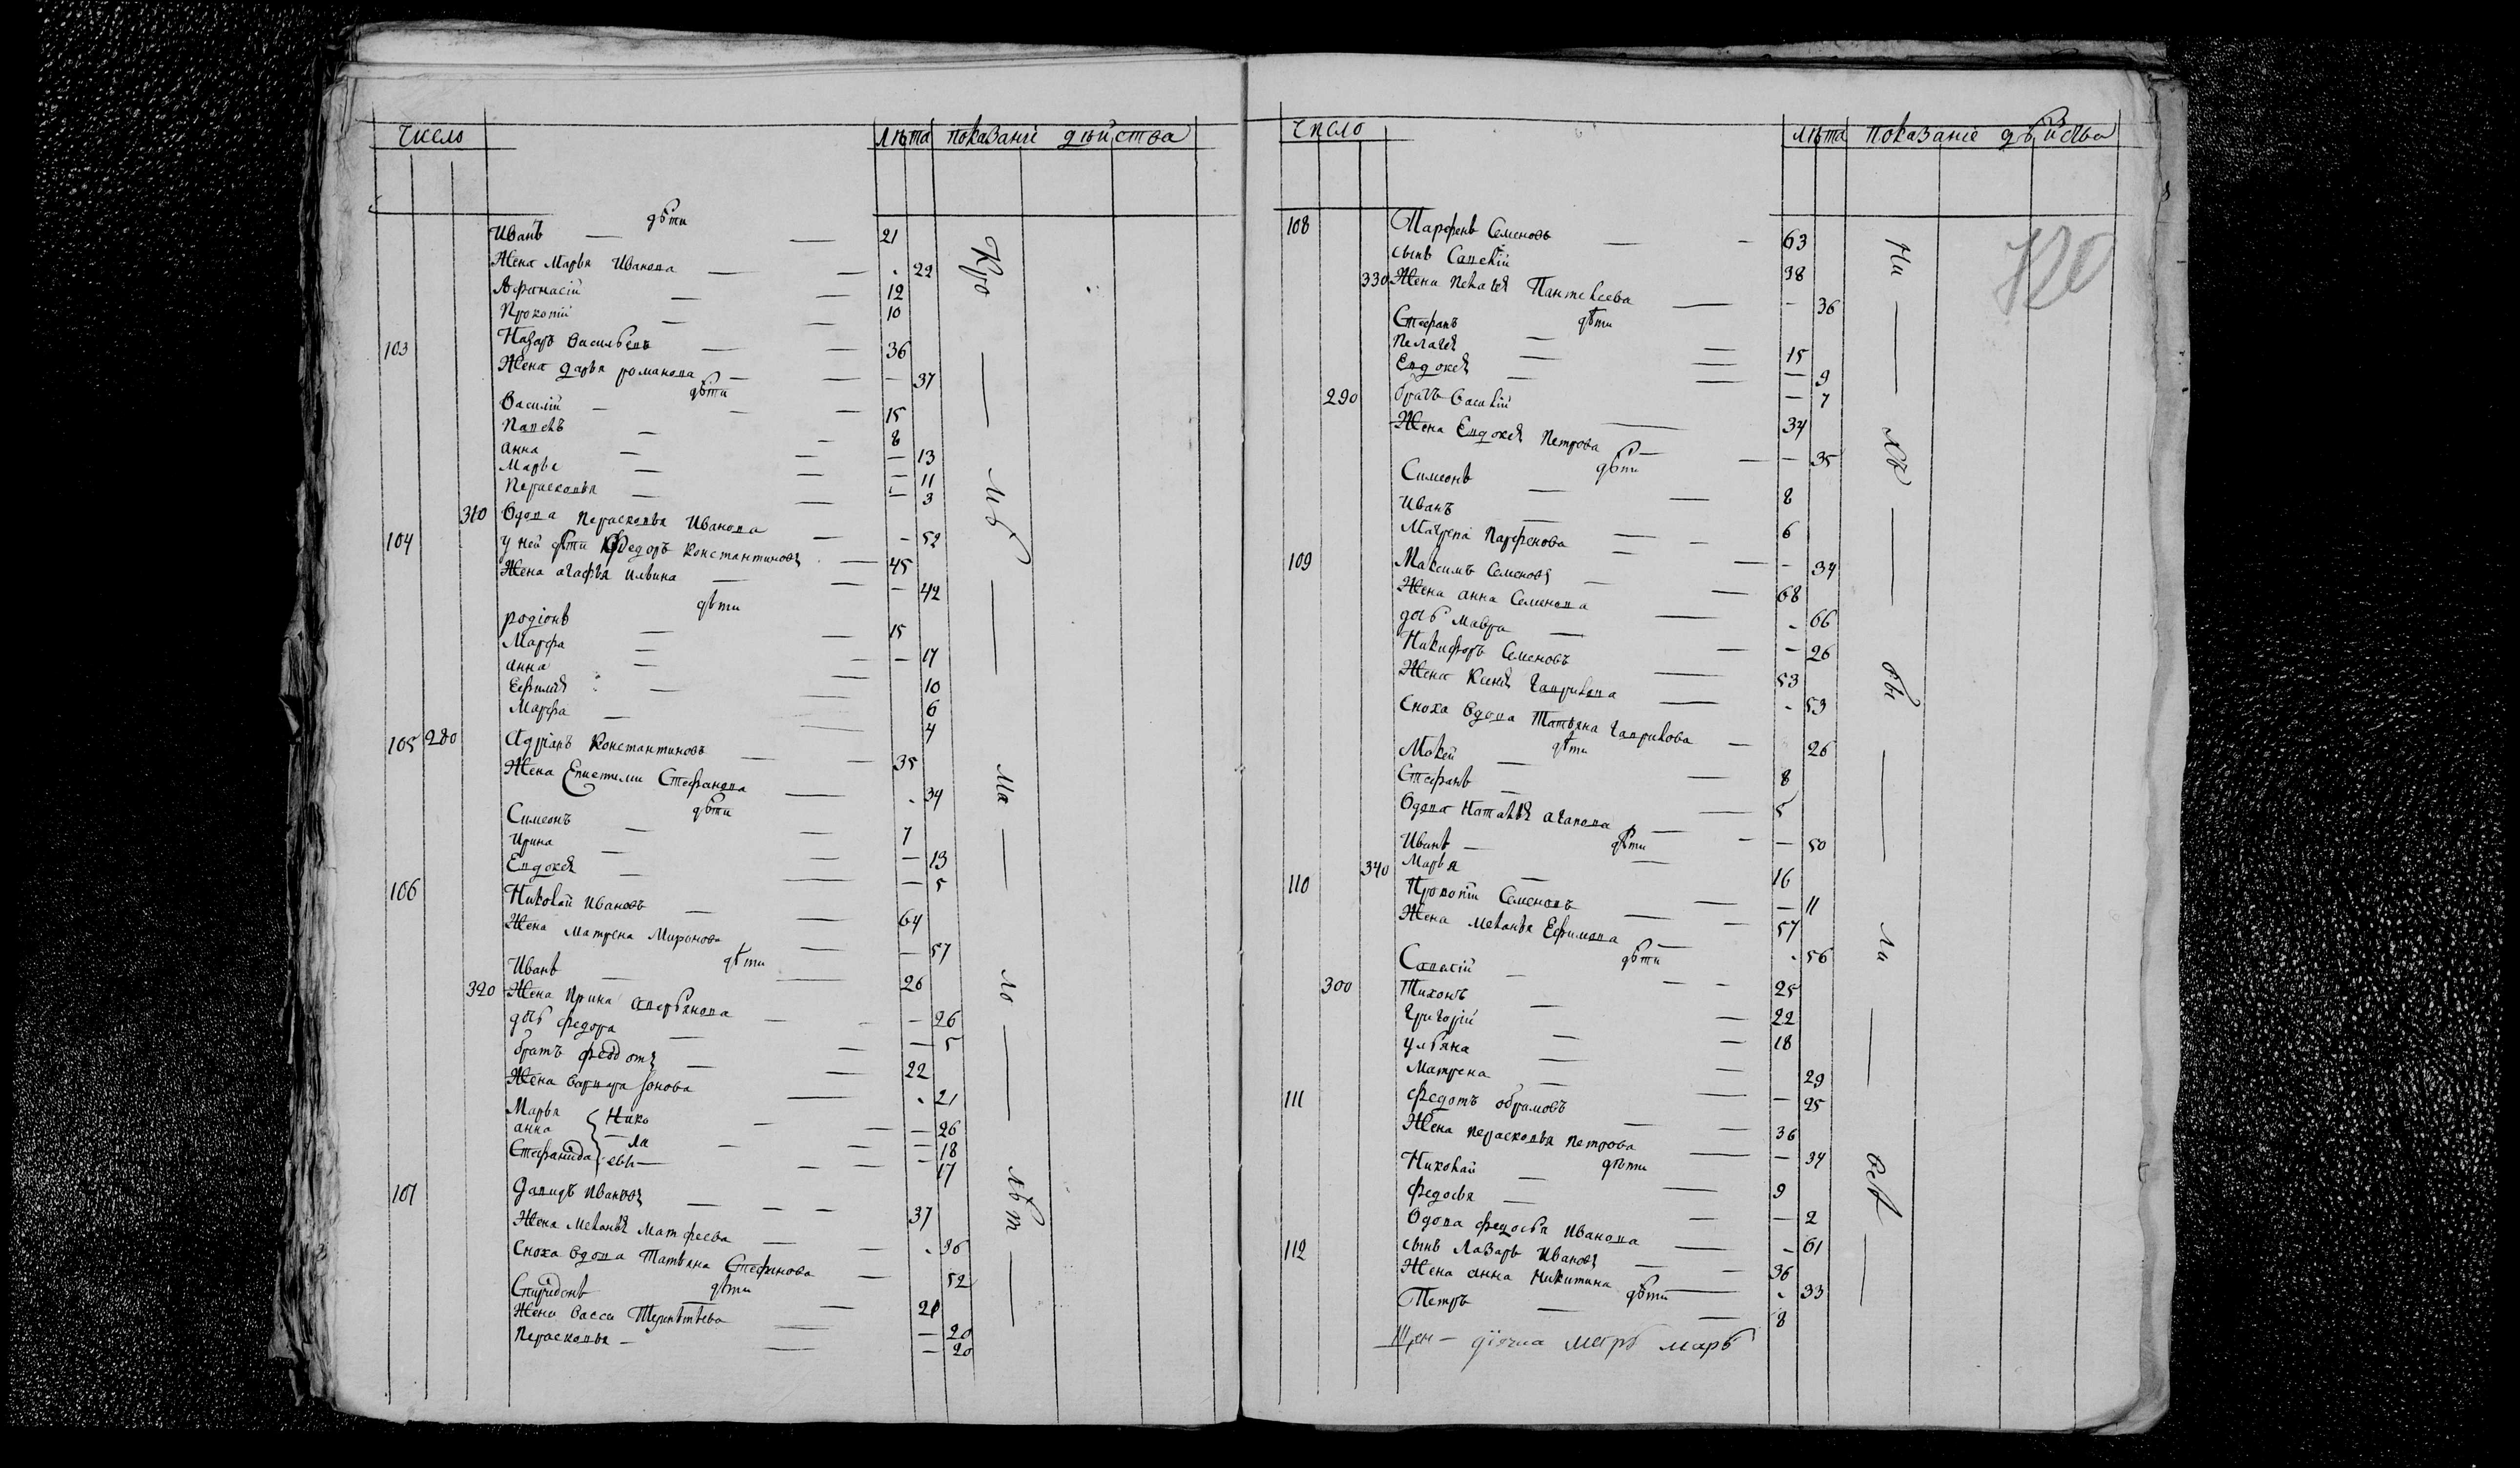 число лѣта показанiе дѣйства
дѣти
Иванъ — — 21
Жена Марья Иванова — — 22
Афанасiй — — 12
Прокопiй — — 10
103 Назаръ Васильевъ — — 36
Жена дарья романова — — — 37
дѣти
Василiй — — — 15
Павелъ — — 8
анна — — — 13
Марья — — — 11
Перасковья — — — 3
310 Вдова Перасковья Иванова — - 52
104 у ней дѣти Федоръ Константиновъ — 45
Жена агафья Ильина — — — 42
дѣти
родiонъ — — 15
Марфа — — — 17
анна — — 10
Ефимiя — — 6
Марфа — — 4
105 280 Адрiанъ Константиновъ — — 35
Жена Епистимiи Стефанова — 34
дѣти
Симеонъ — — 7
Ирина — — — 13
Евдокея — — — 5
106 Николай Ивановъ — — 64
Жена Матрена Миронова — — 57
дѣти
Иванъ — — 26
320 Жена Ирина аверьянова — — — 26
дочь федора — — — 5
братъ федотъ — — 22
Жена варвара Iонова — 21
Марья — — — 26
анна — — — 18
Стефанида — — — 17
Николаевы
107 Давидъ Ивановъ — — — 37
Жена Меланья Матфеева — — 36
Сноха вдова Татьяна Стефанова — 52
дѣти
Спиридонъ — — 21
Жена Васса Терентьева — — 20
Перасковья — — — 20
Кро — — ль — — ма — — ло — — лѣт —
число лѣта показанiе дѣйства
108 Парфенъ Семеновъ — - 63
сынъ Савелiй 38
330 Жена Пелагея Пантелеева — — 36
дѣти
Стефанъ — — 15
Пелагея — — — 9
Евдокея — — — 7
290 братъ Василiй — 34
Жена Евдокея Петрова — — — 35
дѣти
Симеонъ — — 8
Иванъ — — 6
Парфенова — — - 34
109 Максимъ Семеновъ — — 68
Жена анна Семенова — - 66
дочь Мавра — — - 26
Никифоръ Семеновъ — 53
Жена Ксенiя гаврилова — - 53
Сноха вдова Татьяна гаврилова — 26
дѣти
Мокей — — 8
Стефанъ — — 5
Вдова Наталья агапова — — — 50
дѣти
Иванъ — — 16
340 Марья — — — 11
110 Прокопiй Семеновъ — — 57
Жена Меланья Ефимова — 56
дѣти
Савелiй — — - 25
300 Тихонъ — — 22
григорiй — — 18
ульяна — — 29
Матрена — — — 25
111 федотъ обрамовъ — — 36
Жена перасковья петрова — — 34
дѣти
Николай — — 9
федосья — — — 2
Вдова федосья Иванова — — 61
112 сынъ Лазарь Ивановъ — - 36
Жена анна Никитина — 33
дѣти
Петръ — — 8
Ни — — ль — — бы — — ли — — всѣ —
120